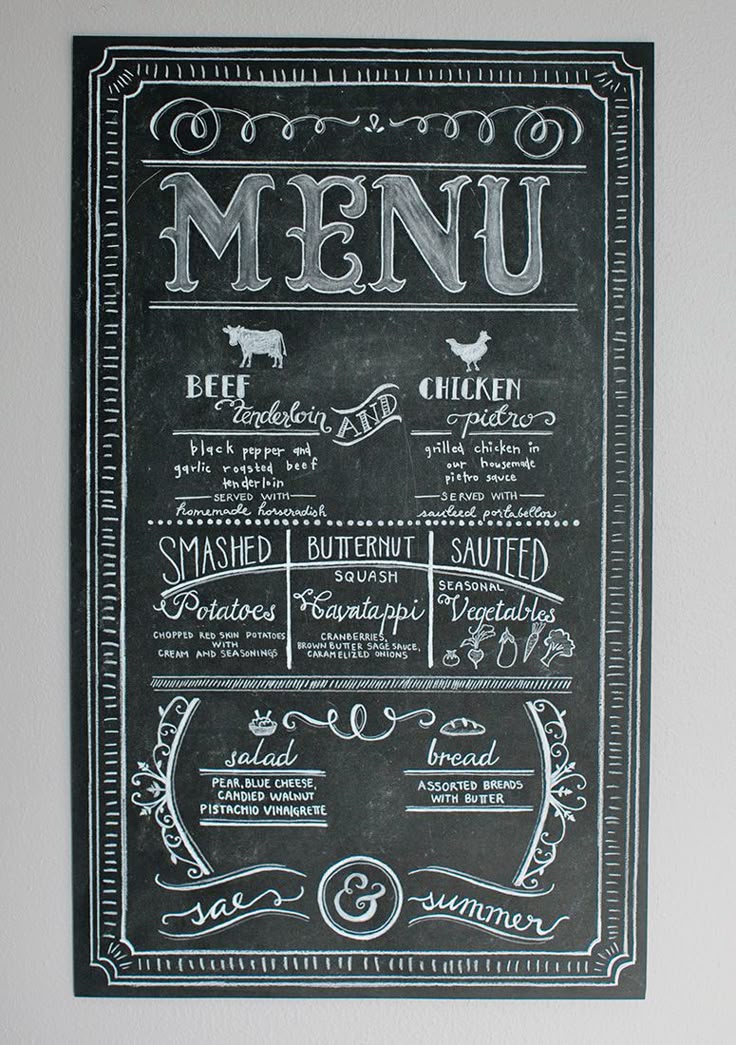 MENU
BEEF
tenderloin
AND
CHICKEN
pietro
black pepper and
garlic roasted beef
tenderloin
SERVED WITH
homemade horseradish
grilled chicken in
our housemade
pietro sauce
SERVED WITH
sauteed portabellos
SMASHED
Potatoes
CHOPPED RED SKIN POTATOES
WITH
CREAM AND SEASONINGS
BUTTERNUT
SQUASH
Cavatappi
CRANBERRIES,
BROWN BUTTER SAGE SAUCE,
CARAMELIZED ONIONS
SAUTEED
SEASONAL
Vegetables
salad
PEAR, BLUE CHEESE,
CANDIED WALNUT
PISTACHIO VINAIGRETTE
bread
ASSORTED BREADS
WITH BUTTER
sae & summer